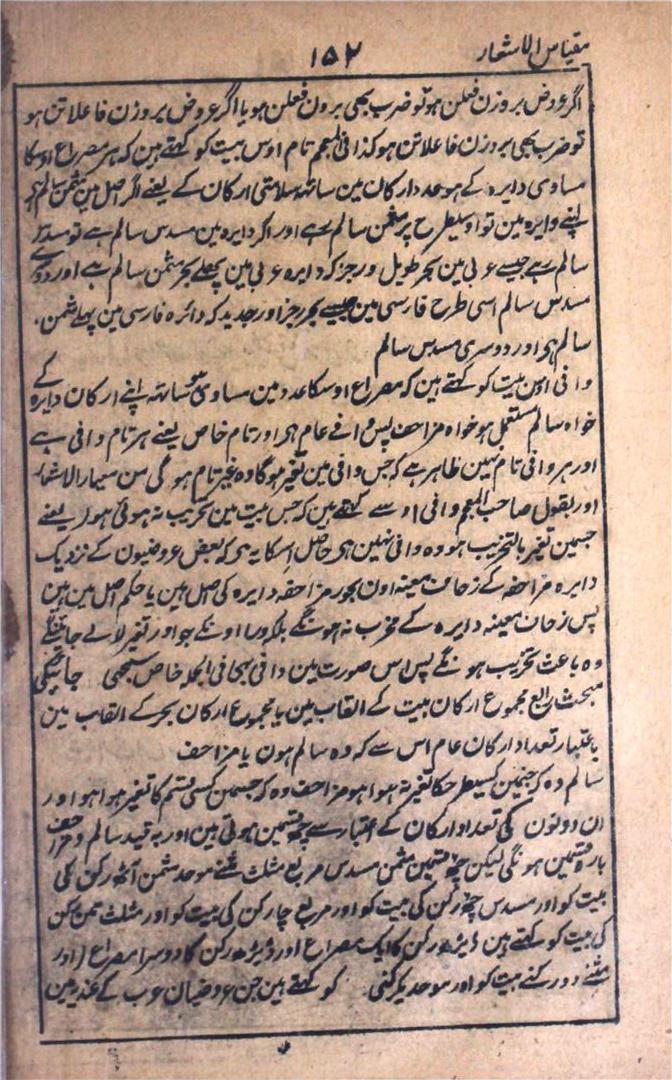 مقیاس الاشعار
۱۵۲
اگر عروض بروزن فعلن ہو تو ضرب بھی بروزن فعلن ہو یا اگر عروض بروزن فاعلاتن ہو
تو ضرب بھی بروزن فاعلاتن ہو کذا فی المعجم تام اوس بیت کو کہتے ہین کہ ہر مصراع اوسکا
مساوی دایرہ کے ہو عدد ارکان مین ساتھ سلامتی ارکان کے یعنے اگر اصل مین مثمن سالم ہے
اپنے دایرہ مین تو اوسیطرح پر مثمن سالم رہے اور اگر دایرہ مین مسدس سالم ہے تو مسدس
سالم رہے جیسے عربی مین بحر طویل و رجز کہ دایرہ عربی مین پہلے بحر مثمن سالم ہے اور دوسرے
مسدس سالم اسی طرح فارسی مین جیسے بحر رجز اور جدید کہ دائرہ فارسی مین پہلے مثمن
سالم ہی اور دوسری مسدس سالم
وافی اوس بیت کو کہتے ہین کہ مصراع اوسکا عدد مین مساوی ہو ساتھ اپنے ارکان دایرہ کے
خواہ سالم مستعمل ہو خواہ مزاحف پس وافے عام ہی اور تام خاص یعنے ہر تام وافی ہے
اور ہر وافی تام نہین ظاہر ہے کہ جس وافی مین تغیر ہوگا وہ غیر تام ہوگی من معیار الاشعار
اور بقول صاحب المعجم وافی اوسے کہتے ہین کہ جس بیت مین تخریب نہ ہوئی ہو (یعنے
جسمین تغیر بالتخریب ہو وہ وافی نہین ہی حاصل اسکا یہ ہی کہ بعض عروضیون کے نزدیک
دایرہ مزاحفہ کے زحاف معینہ اون بحور مزاحفہ دایرہ کی اصل ہین یا حکم اصل مین ہین
پس زحاف معینہ دایرہ کے مخرب نہ ہونگے بلکہ ورا اونکے جو اور تغیر لائے جائینگے
وہ باعث تخریب ہونگے پس اس صورت مین وافی بھی فی الجملہ خاص سمجھی جائیگی
مبحث رابع مجموع ارکان بیت کے القاب مین یا مجموع ارکان بحر کے القاب مین
باعتبار تعداد ارکان عام اس سے کہ وہ سالم ہون یا مزاحف
سالم وہ کہ جنمین کسیطرحکا تغیر نہ ہوا ہو مزاحف وہ کہ جسمین کسی قسم کا تغیر ہوا ہو اور
ان دونون کی تعداد ارکان کے اعتبار سے چھ قسمین ہوتی ہین اور بہ قید سالم و مزاحف
بارہ قسمین ہونگی لیکن چھ قسمین مثمن مسدس مربع مثلث مثنے موحد مثمن آٹھ رکن کی
بیت کو اور مسدس چھ رکن کی بیت کو اور مربع چار رکن کی بیت کو اور مثلث تین رکن
کی بیت کو کہتے ہین ڈیڑھ رکن کا ایک مصراع اور ڈیڑھ رکن کا دوسرا مصراع (اور
مثنے دو رکنے بیت کو اور موحد یکرکنی کو کہتے ہین جن عروضیان عرب کے عندیہ مین